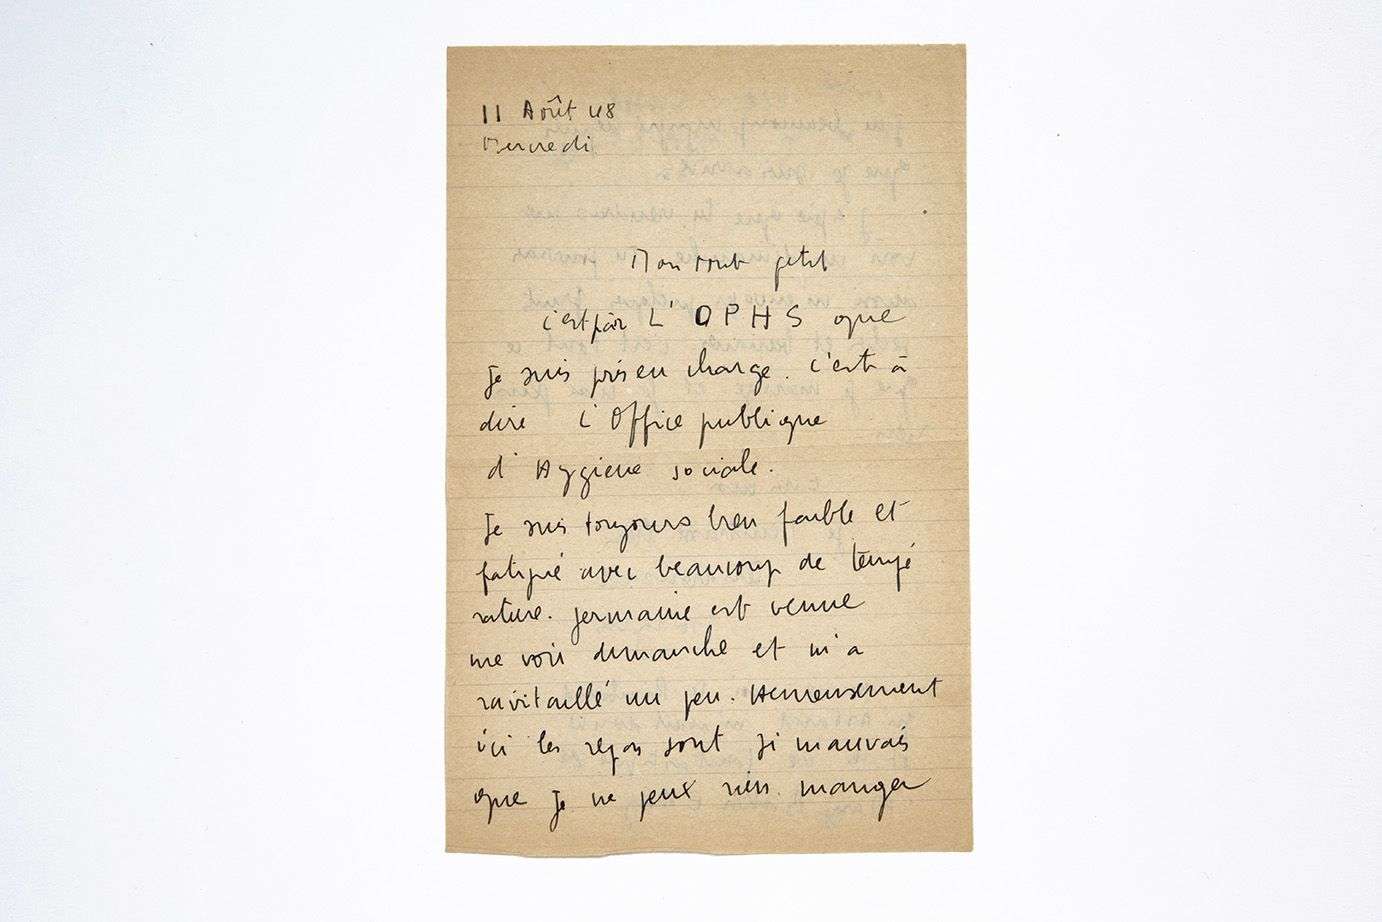 11 Août 48
Mercredi
Mon tout petit
c'est par L'OPHS que
je suis pris en charge. c'est à
dire L'Office publique
d'Hygiene sociale.
Je suis toujours bien faible et
fatigué avec beaucoup de tempé
rature. Germaine est venue
me voir dimanche et m'a
ravitaillé un peu. Heureusement
ici les repas sont si mauvais
que je ne peux rien manger